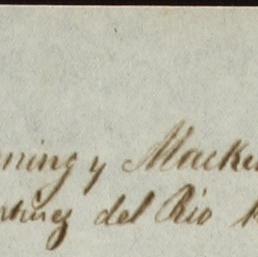 ning y Macke
rtinez del Rio